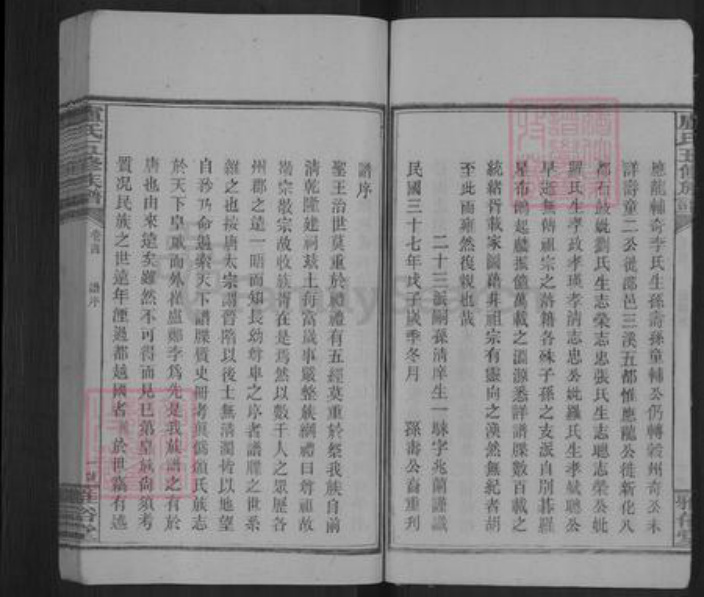 應龍輔奇李氏生孫壽孫童輔公仍轉穀州奇公未
詳壽童二公從邵邑三溪五都惟應龍公徙新化八
都石皷妣劉氏生志榮志忠張氏生志聰志榮公妣
羅氏生孝政孝瑛孝清志忠公妣羅氏生孝斌聰公
早逝無傳祖宗之落籍各殊子孫之支派自別碁羅
星布鵲起麟振億萬載之淵源悉詳譜牒數百載之
統緒胥載家圖藉非祖宗有靈向之渙然無紀者胡
至此而雍然復親也哉
二十三派嗣孫清庠生一駷字兆蘭謹識
民國三十七年戊子歲季冬月 孫壽公裔重刋
譜序
聖王治世莫重於禮禮有五經莫重於祭我族自前
清乾隆建祠玆土每富歲事嚴整族綱禮曰尊祖故
敬宗敬宗故收族胥在是焉然以數千人之眾歷各
州郡之遠一晤而知長幼尊卑之序者譜牒之世系
維之也按唐太宗謂晉階以後士無清濁皆以地望
自矜乃命遍索天下譜牒質史冊考眞偽讀氏族志
於天下皇族而外推盧鄭李爲先是我族譜之有於
唐也由來遠矣雖然不可得而見已第皇族尚須考
質況民族之世遠年湮過都越國者 於世寓有遙
盧氏五修族譜
卷首 譜序